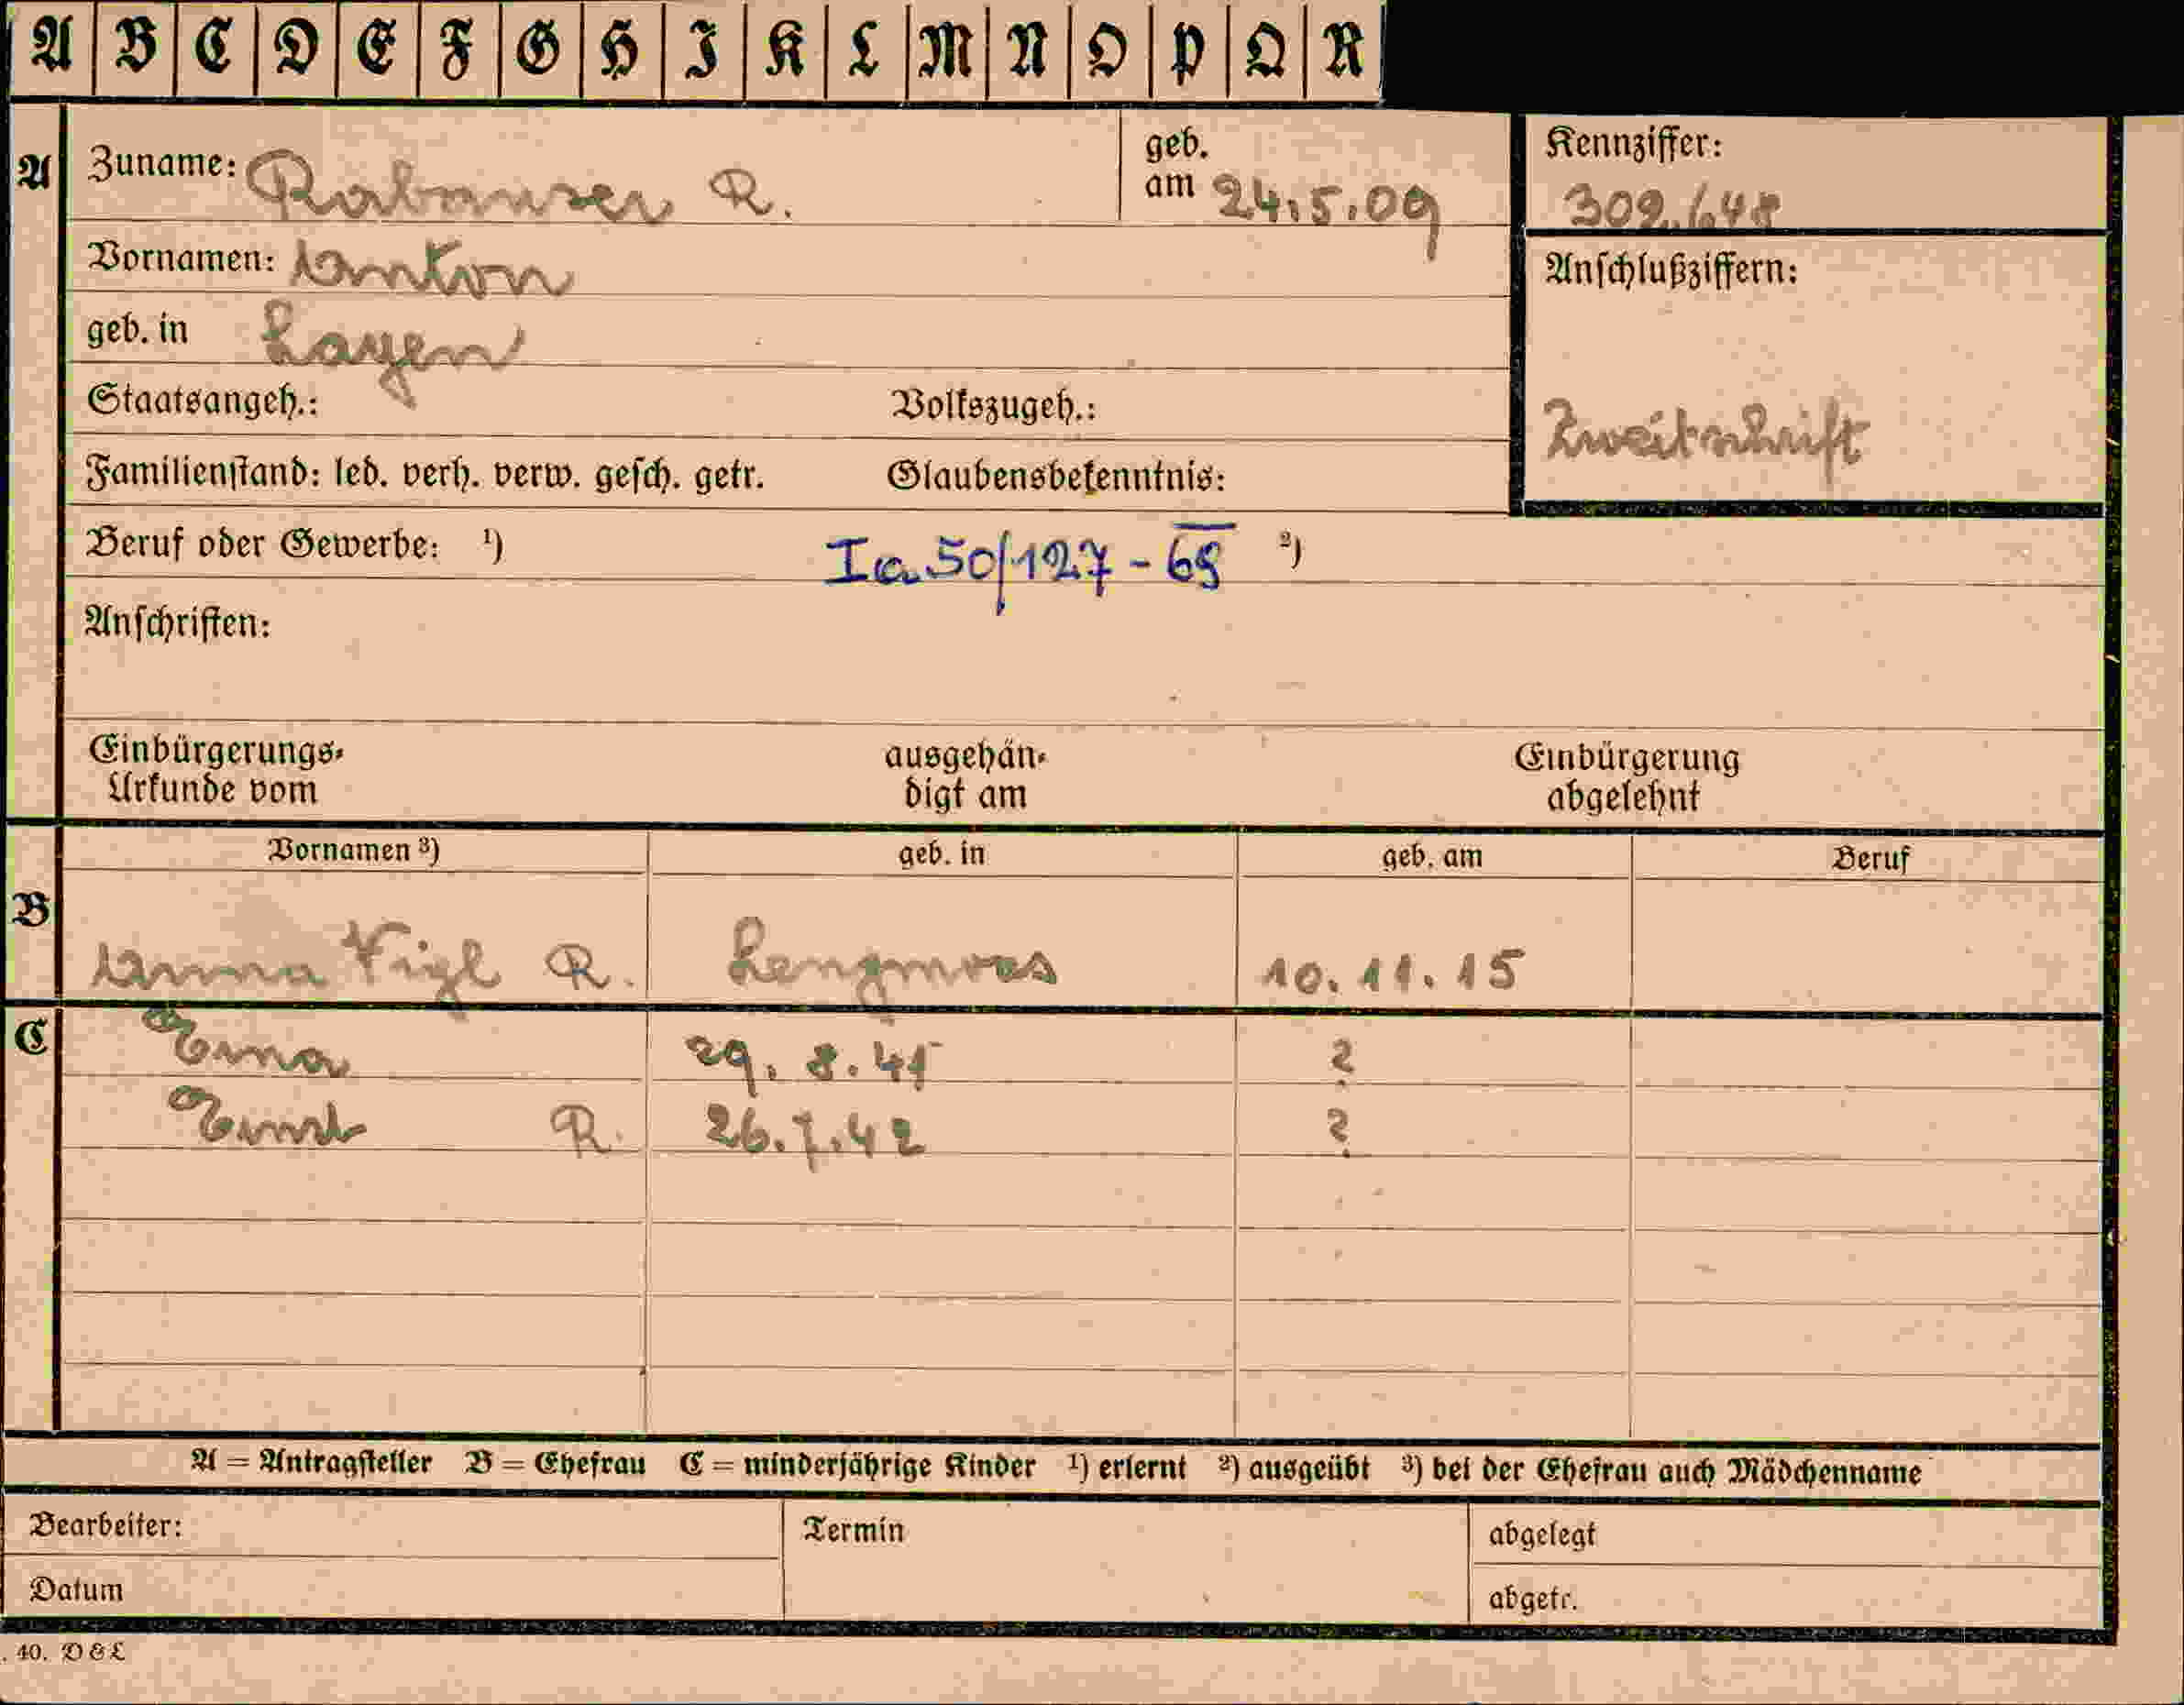 A B C D E F G H I K L M N O P Q R
A Zuname: Rabanser R. geb. am 24.5.09 Kennziffer: 309.648
Vornamen: Anton Anschlußziffern:
geb. in Layen
Staatsangeh.: Volkszugeh.: Zweitschrift
Familienstand: led. verh. verw. gesch. getr. Glaubensbekenntnis:
Beruf oder Gewerbe: ¹) Ia 50/127-69 ²)
Anschriften:
Einbürgerungs- ausgehän- Einbürgerung
Urkunde vom digt am abgelehnt
Vornamen ³) geb. in geb. am Beruf
B Anna Vigl R. Lengmoos 10.11.15
C Erna 29. 8. 41 ?
Ernst R. 26.7.42 ?
A = Antragsteller B = Ehefrau C = minderjährige Kinder ¹) erlernt ²) ausgeübt ³) bei der Ehefrau auch Mädchenname
Bearbeiter: Termin abgelegt
Datum abgetr.
. 40. D & L